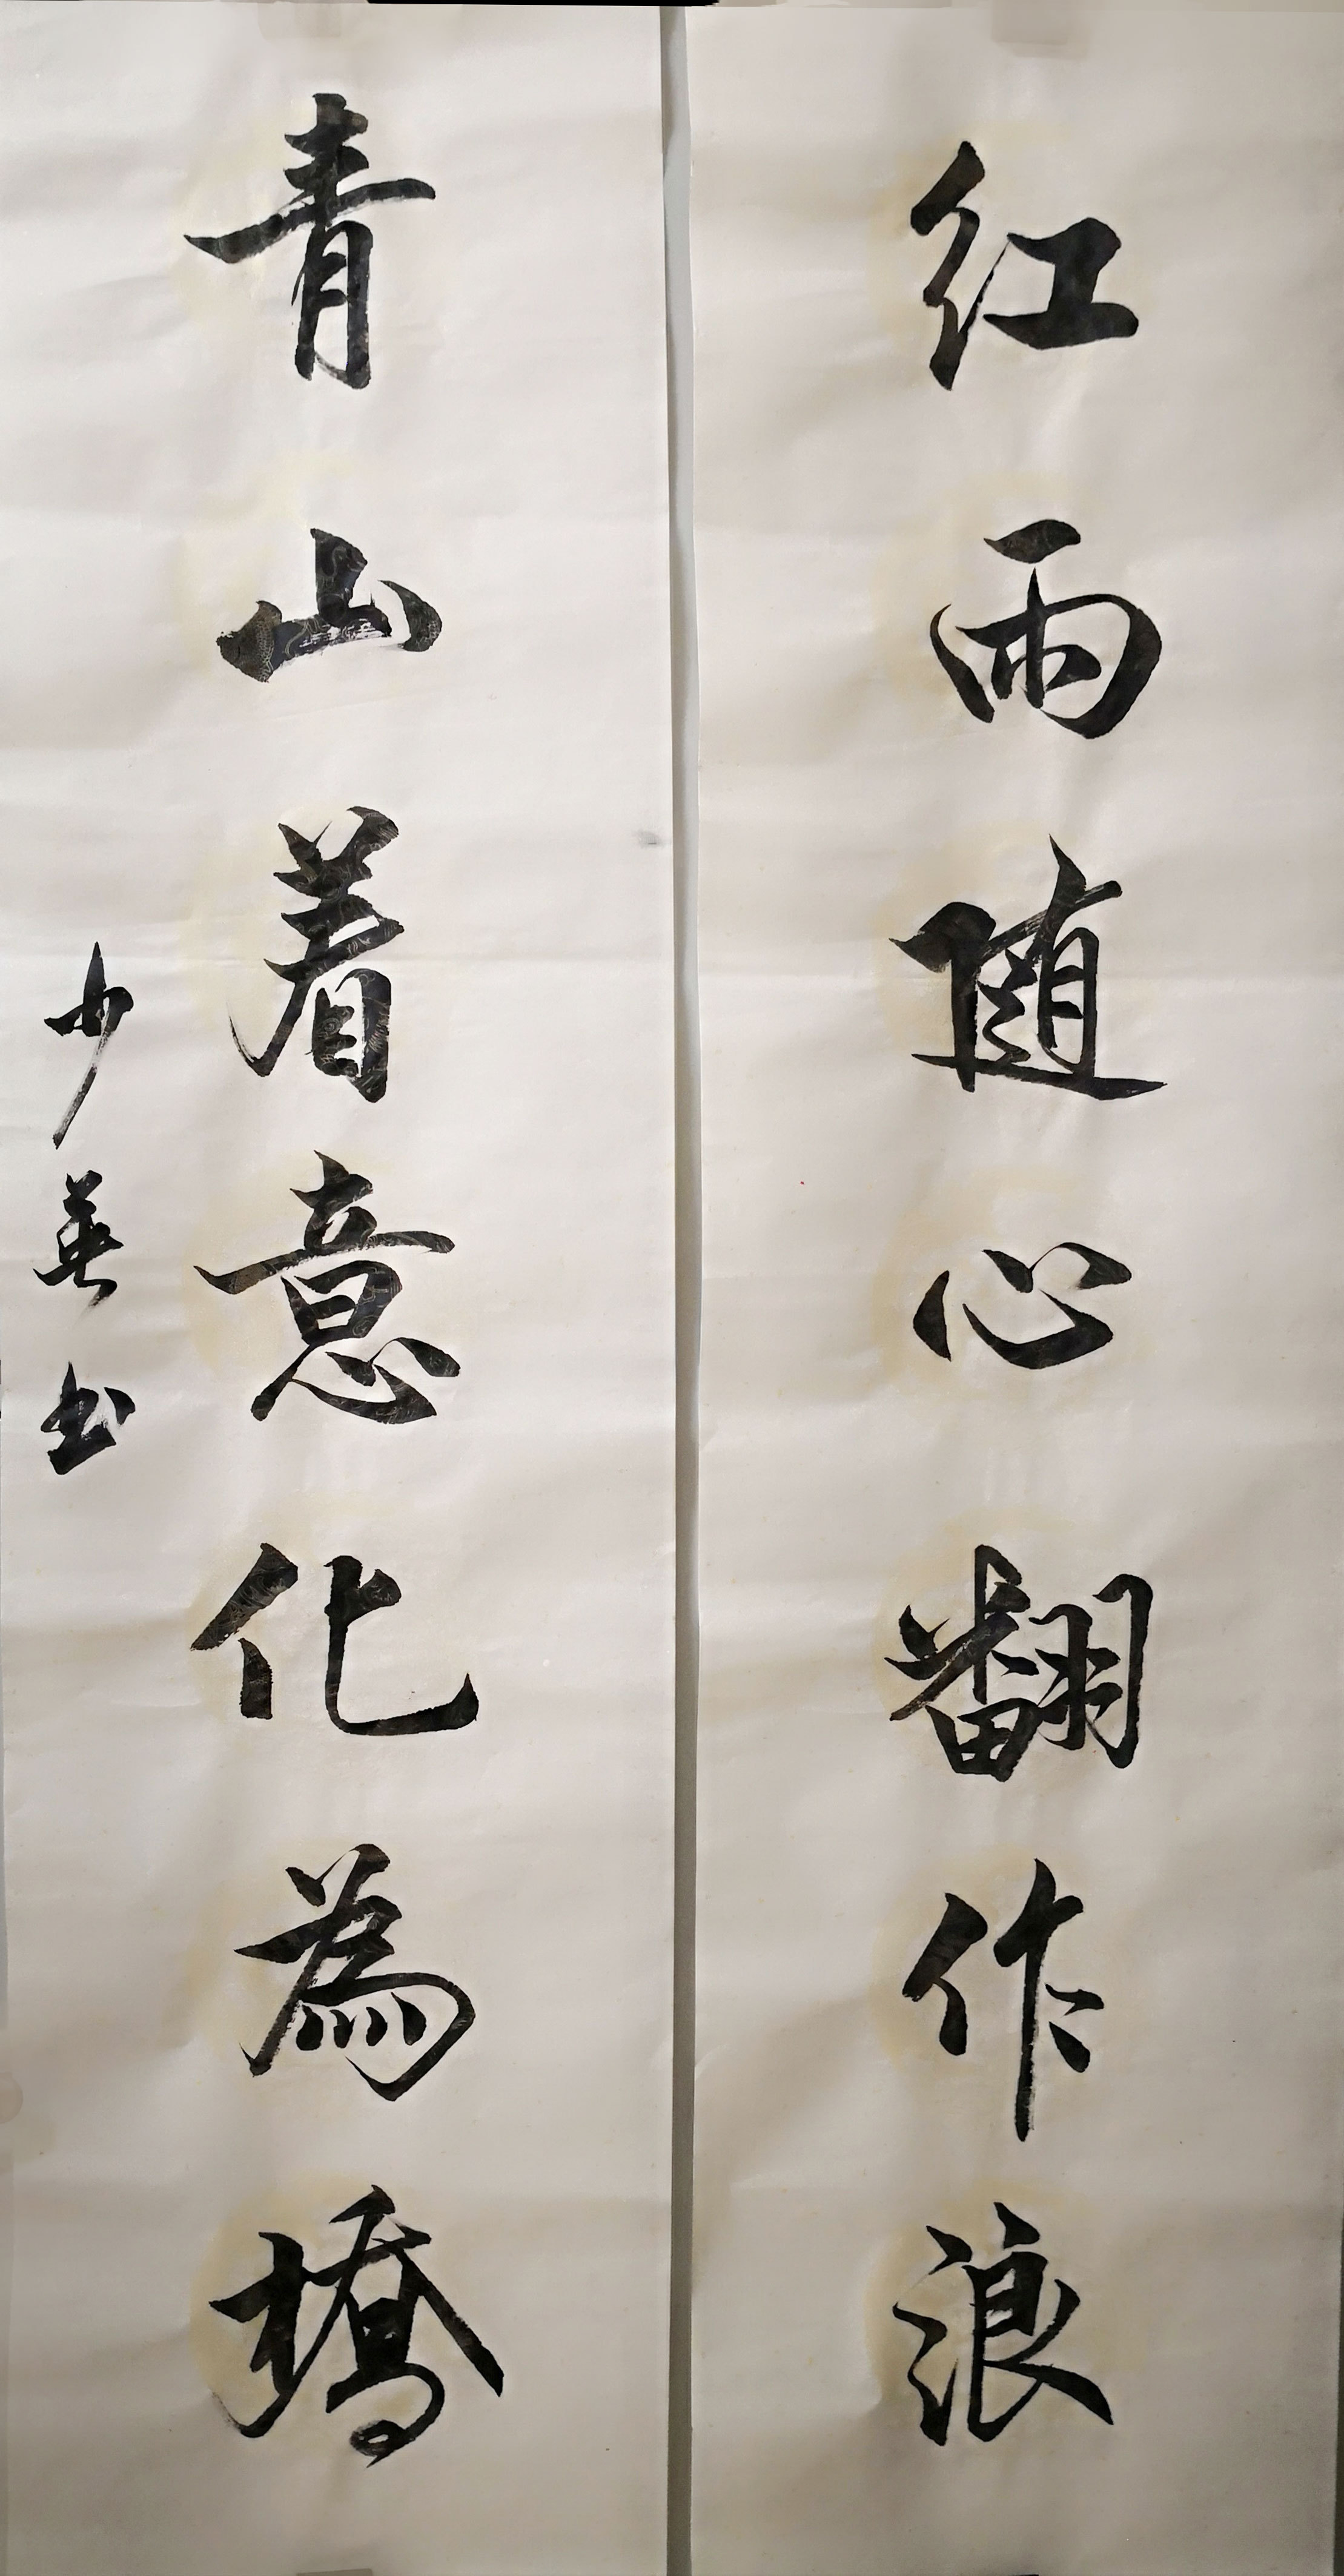 红雨随心翻作浪
青山着意化為橋
少英书